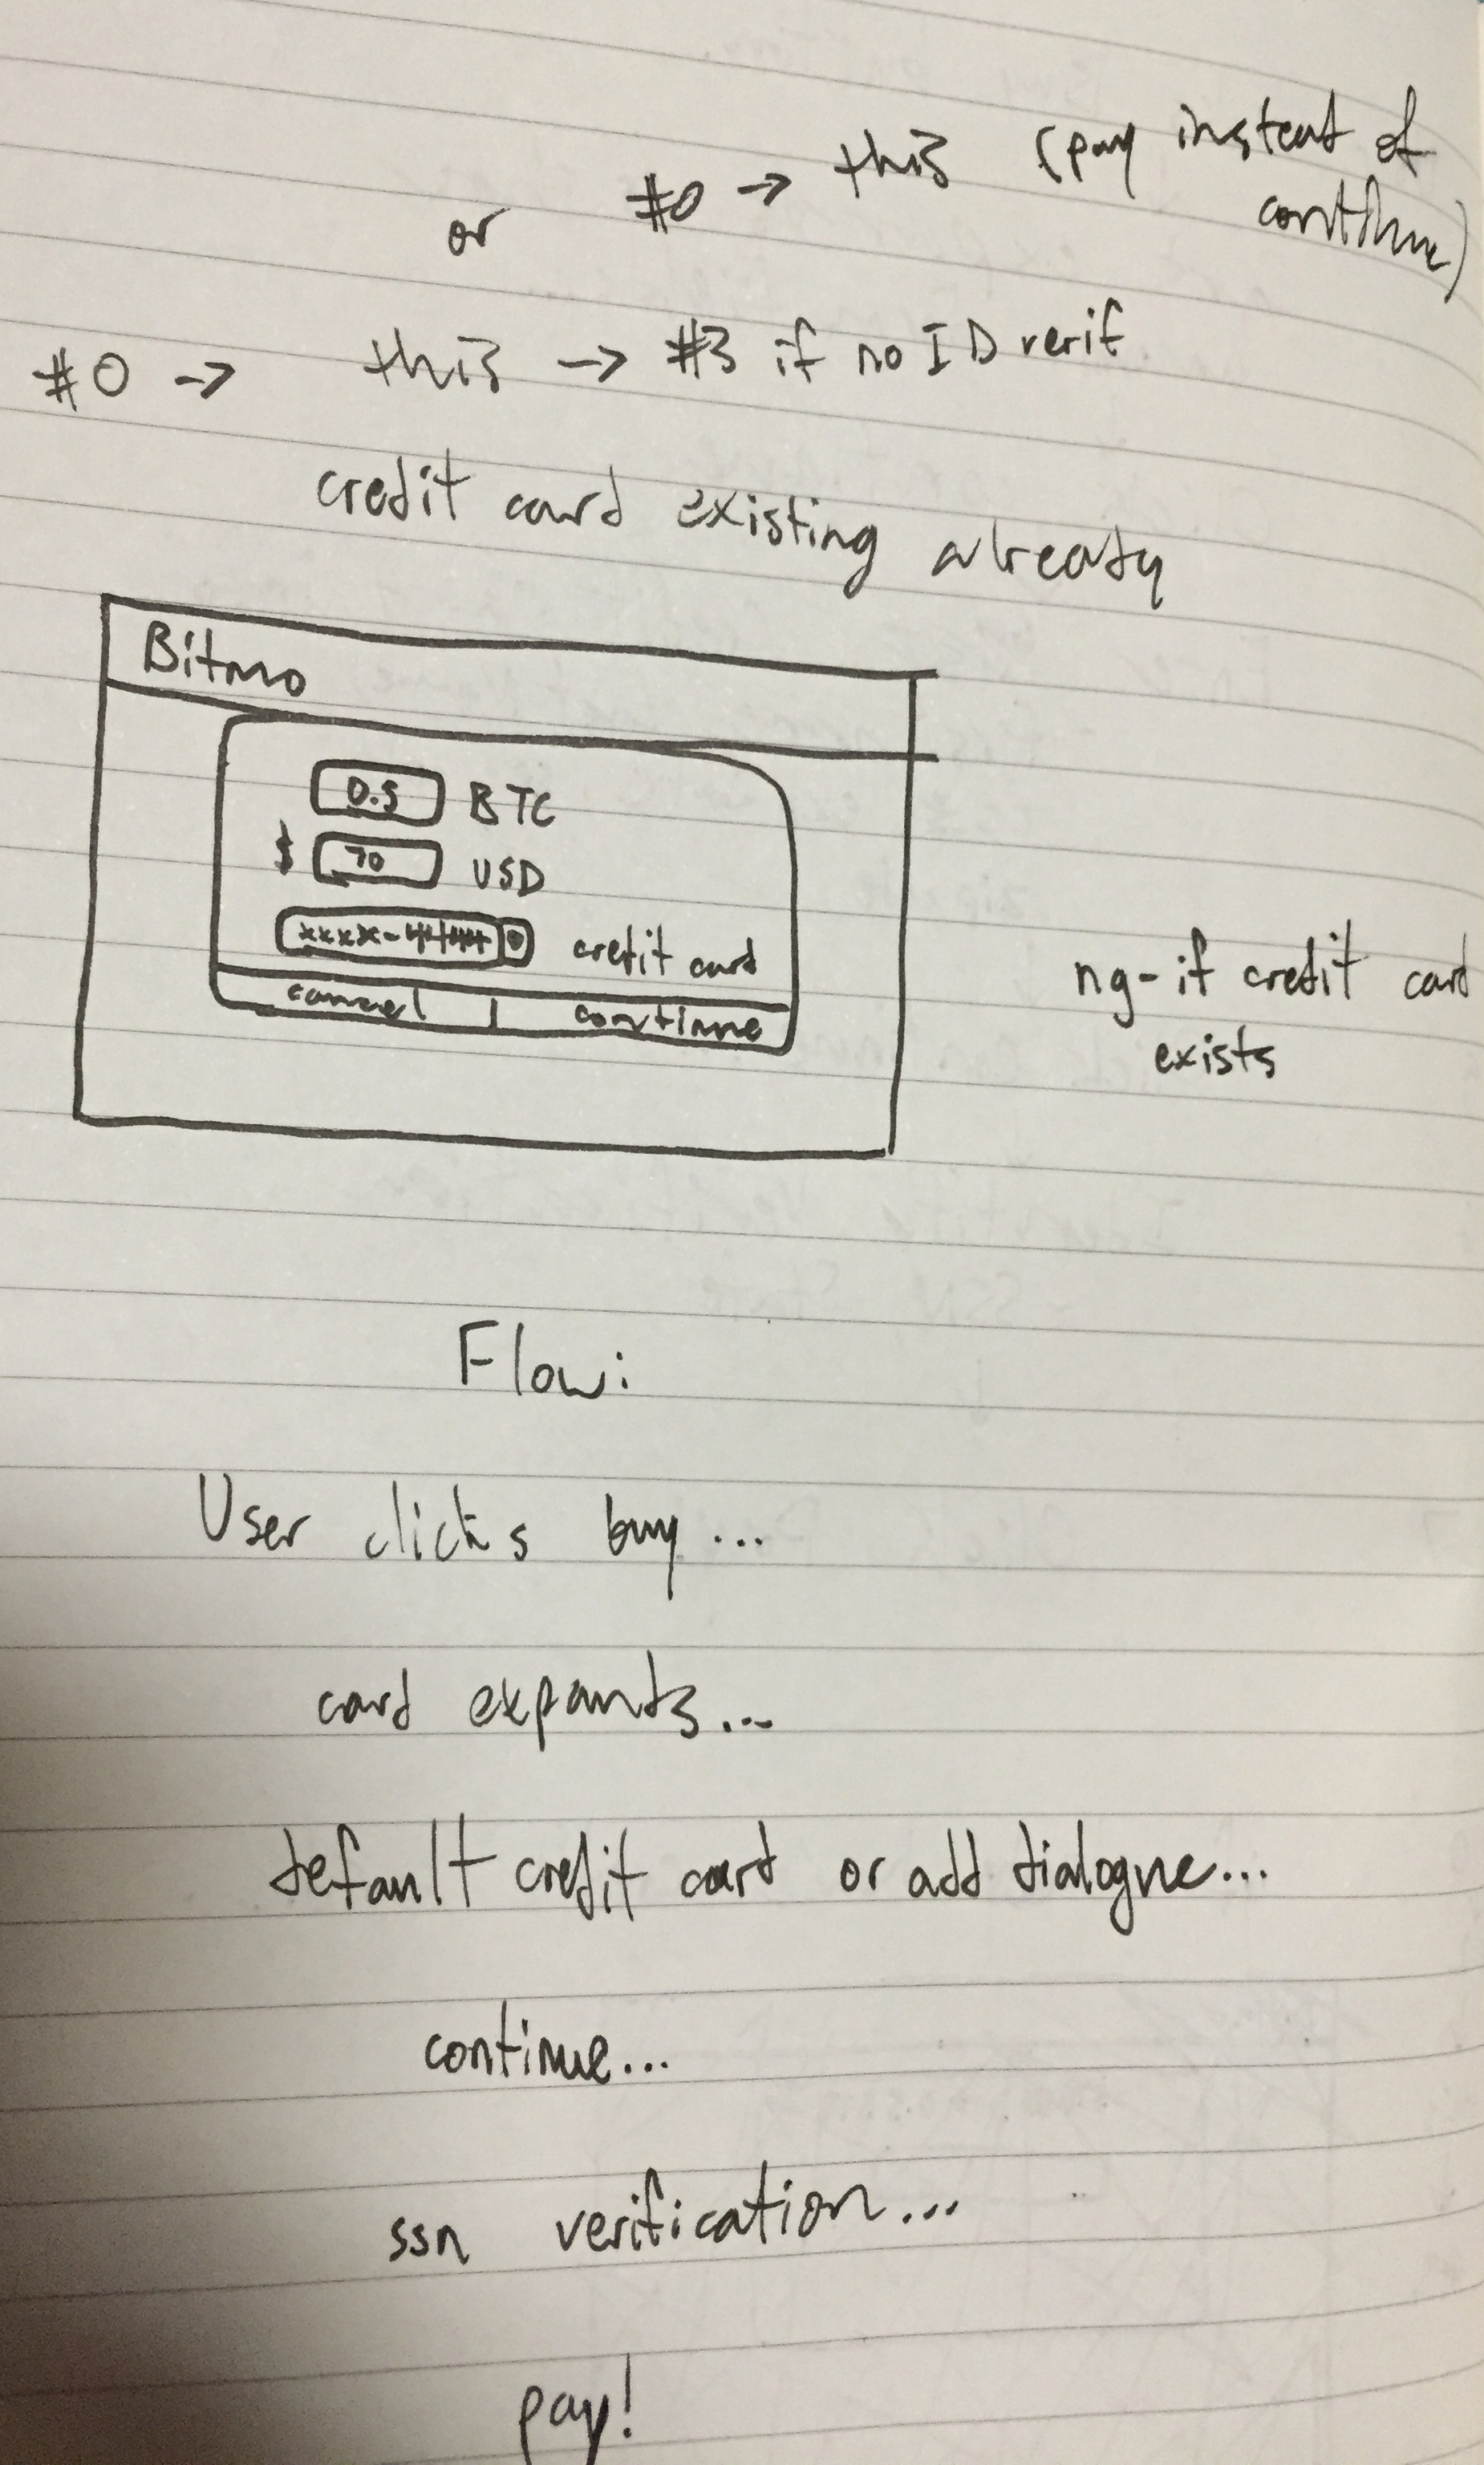 or #0 → this (pay instead of
continue)
#0 → this → #3 if no ID verif
credit card existing already
Bitmo
0.5 BTC
$ 70 USD
xxxx-4444 credit card
cancel | continue
ng-if credit card
exists
Flow:
User clicks buy...
card expands...
default credit card or add dialogue...
continue...
ssn verification...
pay!